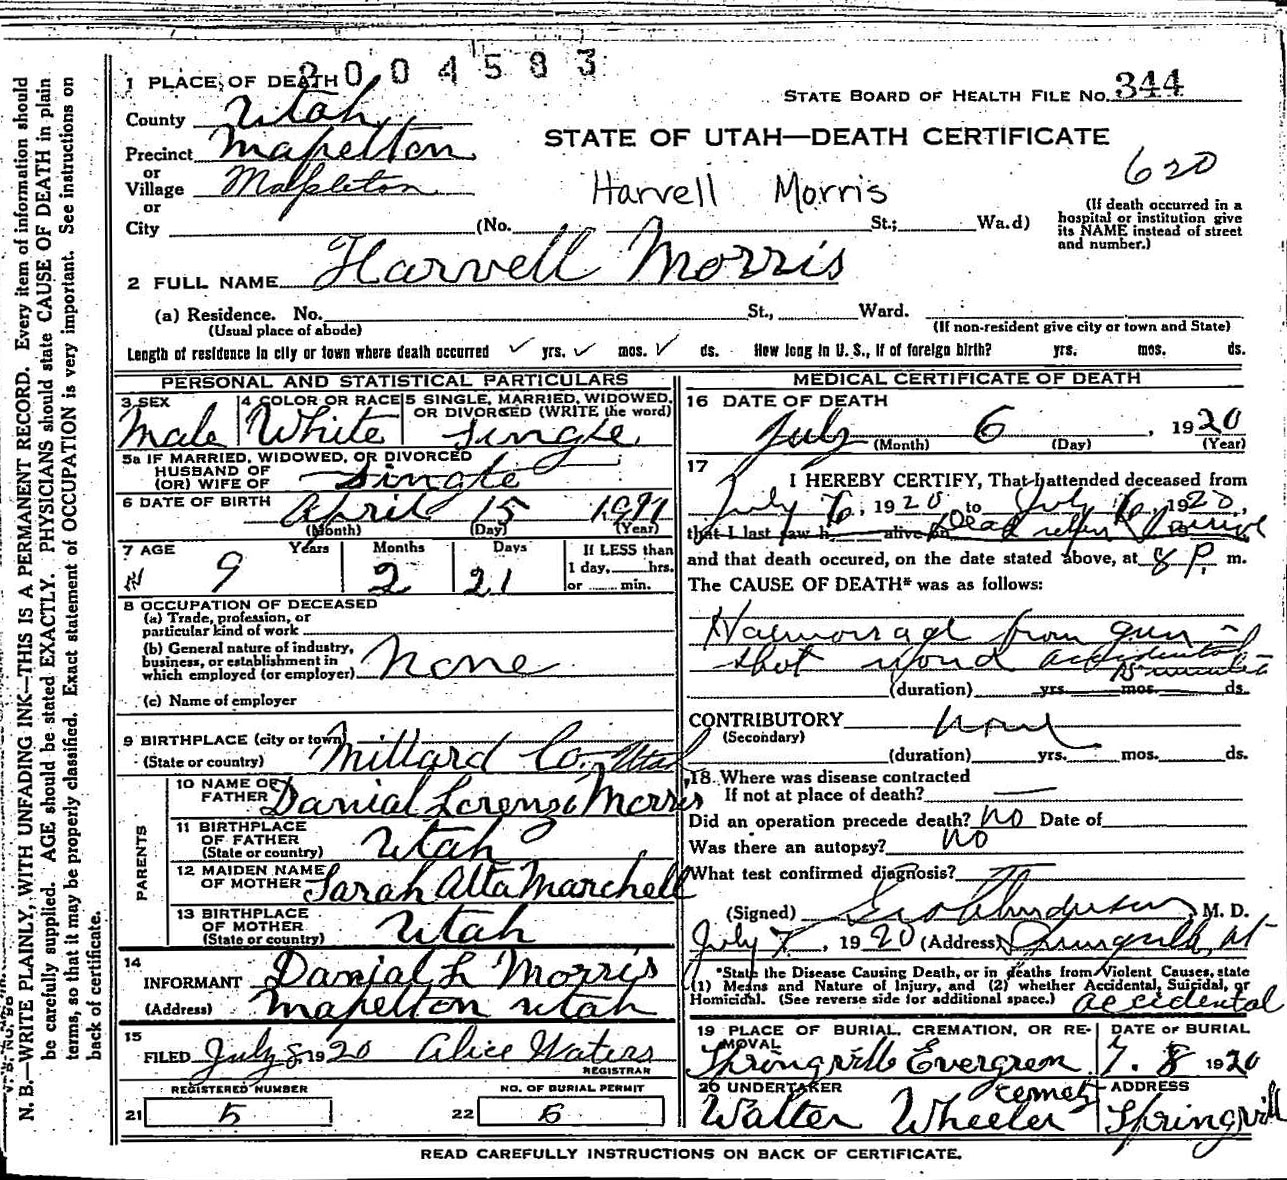 2004583
1 PLACE OF DEATH
STATE BOARD OF HEALTH FILE No. 344
County Utah
STATE OF UTAH—DEATH CERTIFICATE
Precinct Mapelton
or
Village Mapleton
620
Harvell Morris
or
City (No. St.; Wa.d)
(If death occurred in a
hospital or institution give
its NAME instead of street
and number.)
2 FULL NAME Harvell Morris
(a) Residence. No. St., Ward.
(Usual place of abode)
(If non-resident give city or town and State)
Length of residence in city or town where death occurred ✓ yrs. ✓ mos. ✓ ds. How long in U. S., if of foreign birth? yrs. mos. ds.
PERSONAL AND STATISTICAL PARTICULARS
3 SEX
Male
4 COLOR OR RACE
White
5 SINGLE, MARRIED, WIDOWED,
OR DIVORCED (WRITE the word)
Single
5a IF MARRIED, WIDOWED, OR DIVORCED
HUSBAND OF
(OR) WIFE OF Single
6 DATE OF BIRTH April 15
(Month) (Day) (Year)
7 AGE Years Months Days
9 2 21
If LESS than
1 day, hrs.
or min.
8 OCCUPATION OF DECEASED
(a) Trade, profession, or
particular kind of work
(b) General nature of industry,
business, or establishment in
which employed (or employer) None
(c) Name of employer
9 BIRTHPLACE (city or town)
(State or country) Millard Co. Utah
PARENTS
10 NAME OF
FATHER Danial Lorenzo Morris
11 BIRTHPLACE
OF FATHER
(State or country) Utah
12 MAIDEN NAME
OF MOTHER Sarah Alta Marchell
13 BIRTHPLACE
OF MOTHER
(State or country) Utah
14
INFORMANT Danial L Morris
(Address) Mapelton Utah
15
FILED July 8, 1920 Alice Waters
REGISTRAR
REGISTERED NUMBER
21 5
NO. OF BURIAL PERMIT
22 6
MEDICAL CERTIFICATE OF DEATH
16 DATE OF DEATH
July 6, 1920
(Month) (Day) (Year)
17
I HEREBY CERTIFY, That I attended deceased from
July 6, 1920 to July 6, 1920,
that I last saw h alive on Dead when I
and that death occured, on the date stated above, at 8 P. m.
The CAUSE OF DEATH* was as follows:
Haemorrage from gun-
shot wound accidental
15 minutes
(duration) yrs. mos. ds.
CONTRIBUTORY none
(Secondary)
(duration) yrs. mos. ds.
18 Where was disease contracted
If not at place of death? —
Did an operation precede death? No Date of
Was there an autopsy? No
What test confirmed diagnosis?
(Signed) Geo Anderson, M. D.
July 7, 1920 (Address) Springville, Ut
*State the Disease Causing Death, or in deaths from Violent Causes, state
(1) Means and Nature of Injury, and (2) whether Accidental, Suicidal, or
Homicidal. (See reverse side for additional space.) accidental
19 PLACE OF BURIAL, CREMATION, OR RE-
MOVAL
Springville Evergreen
cemet
DATE OF BURIAL
7. 8 1920
20 UNDERTAKER
Walter Wheeler
ADDRESS
Springvill
READ CAREFULLY INSTRUCTIONS ON BACK OF CERTIFICATE.
N. B.—WRITE PLAINLY, WITH UNFADING INK—THIS IS A PERMANENT RECORD. Every item of information should
be carefully supplied. AGE should be stated EXACTLY. PHYSICIANS should state CAUSE OF DEATH in plain
terms, so that it may be properly classified. Exact statement of OCCUPATION is very important. See instructions on
back of certificate.